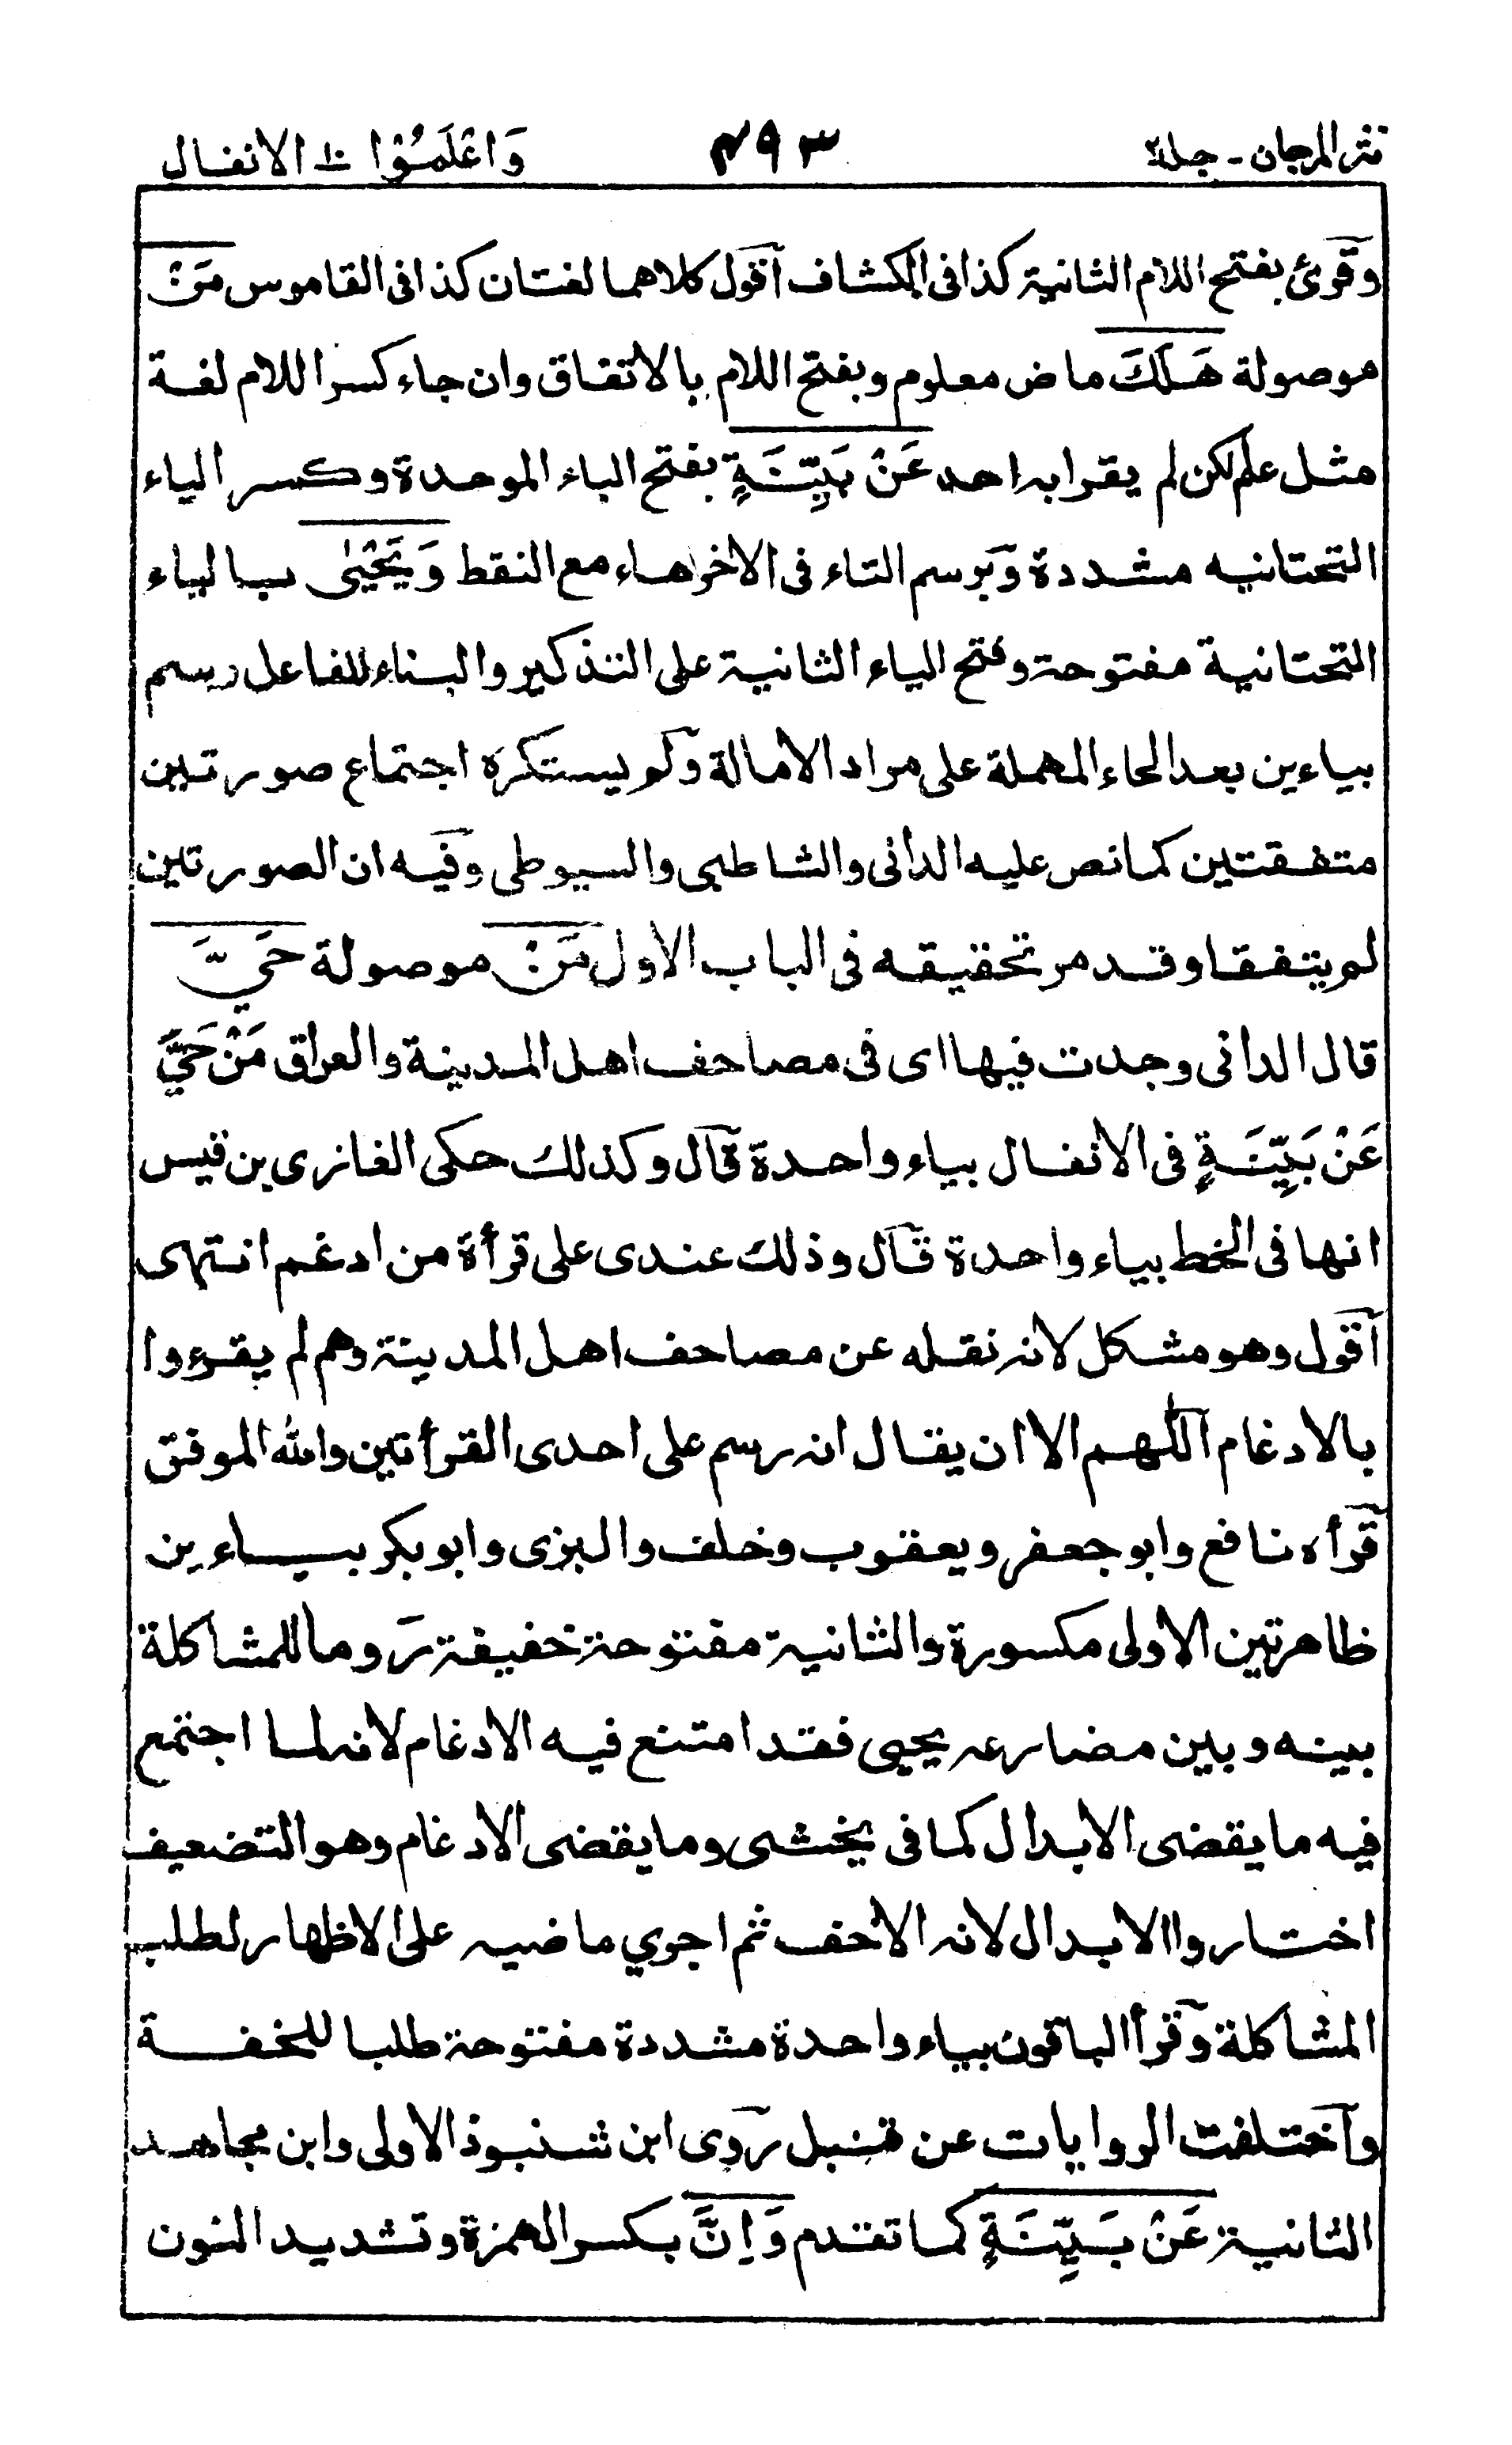 نثر المرجان - جلد ٢
٤٩٣
وَاعْلَمُوْٓا ١٠ الانفال
وقرئ بفتح اللام الثانية كذا فى الكشاف اقول كلاهما لغتان كذا فى القاموس مَنْ
موصولة هَلَكَ ماض معلوم وبفتح اللام بالاتفاق وان جاء كسر اللام لغة
مثل علم لكن لم يقرا به احد عَنْ بَيِّنَةٍ بفتح الباء الموحدة وكسر الياء
التحتانيه مشددة وبرسم التاء فى الاخر هاء مع النقط وَيَحْيٰى بالياء
التحتانية مفتوحة وفتح الياء الثانية على التذكير والبناء للفاعل رسم
بياءين بعد الحاء المهملة على مراد الامالة ولم يستكره اجتماع صورتين
متفقتين كما نص عليه الدانى والشاطبى والسيوطى وفيه ان الصورتين
لم يتفقا وقد مر تحقيقه فى الباب الاول مَنْ موصولة حَيَّ
قال الدانى وجدت فيها اى فى مصاحف اهل المدينة والعراق مَنْ حَيَّ
عَنْ بَيِّنَةٍ فى الانفال بياء واحدة قال وكذلك حكى الغازى بن قيس
انها فى الخط بياء واحدة قال وذلك عندى على قرأة من ادغم انتهى
اقول وهو مشكل لانه نقله عن مصاحف اهل المدينة وهم لم يقرءوا
بالادغام اللهم الا ان يقال انه رسم على احدى القرأتين والله الموفق
قرأه نافع وابو جعفر ويعقوب وخلف والبزى وابو بكر بياءين
ظاهرتين الاولى مكسورة والثانية مفتوحة خفيفة رَوما للمشاكلة
بينه وبين مضارعه يحيى فقد امتنع فيه الادغام لانه لما اجتمع
فيه ما يقضى الابدال كما فى يخشى وما يقضى الادغام وهو التضعيف
اختاروا الابدال لانه الاخف ثم اجري ماضيه على الاظهار لطلب
المشاكلة وقرأ الباقون بياء واحدة مشددة مفتوحة طلبا للخفة
واختلفت الروايات عن قنبل روى ابن شنبوذ الاولى وابن مجاهد
الثانية عَنْ بَيِّنَةٍ كما تقدم وَاِنَّ بكسر الهمزة وتشديد النون